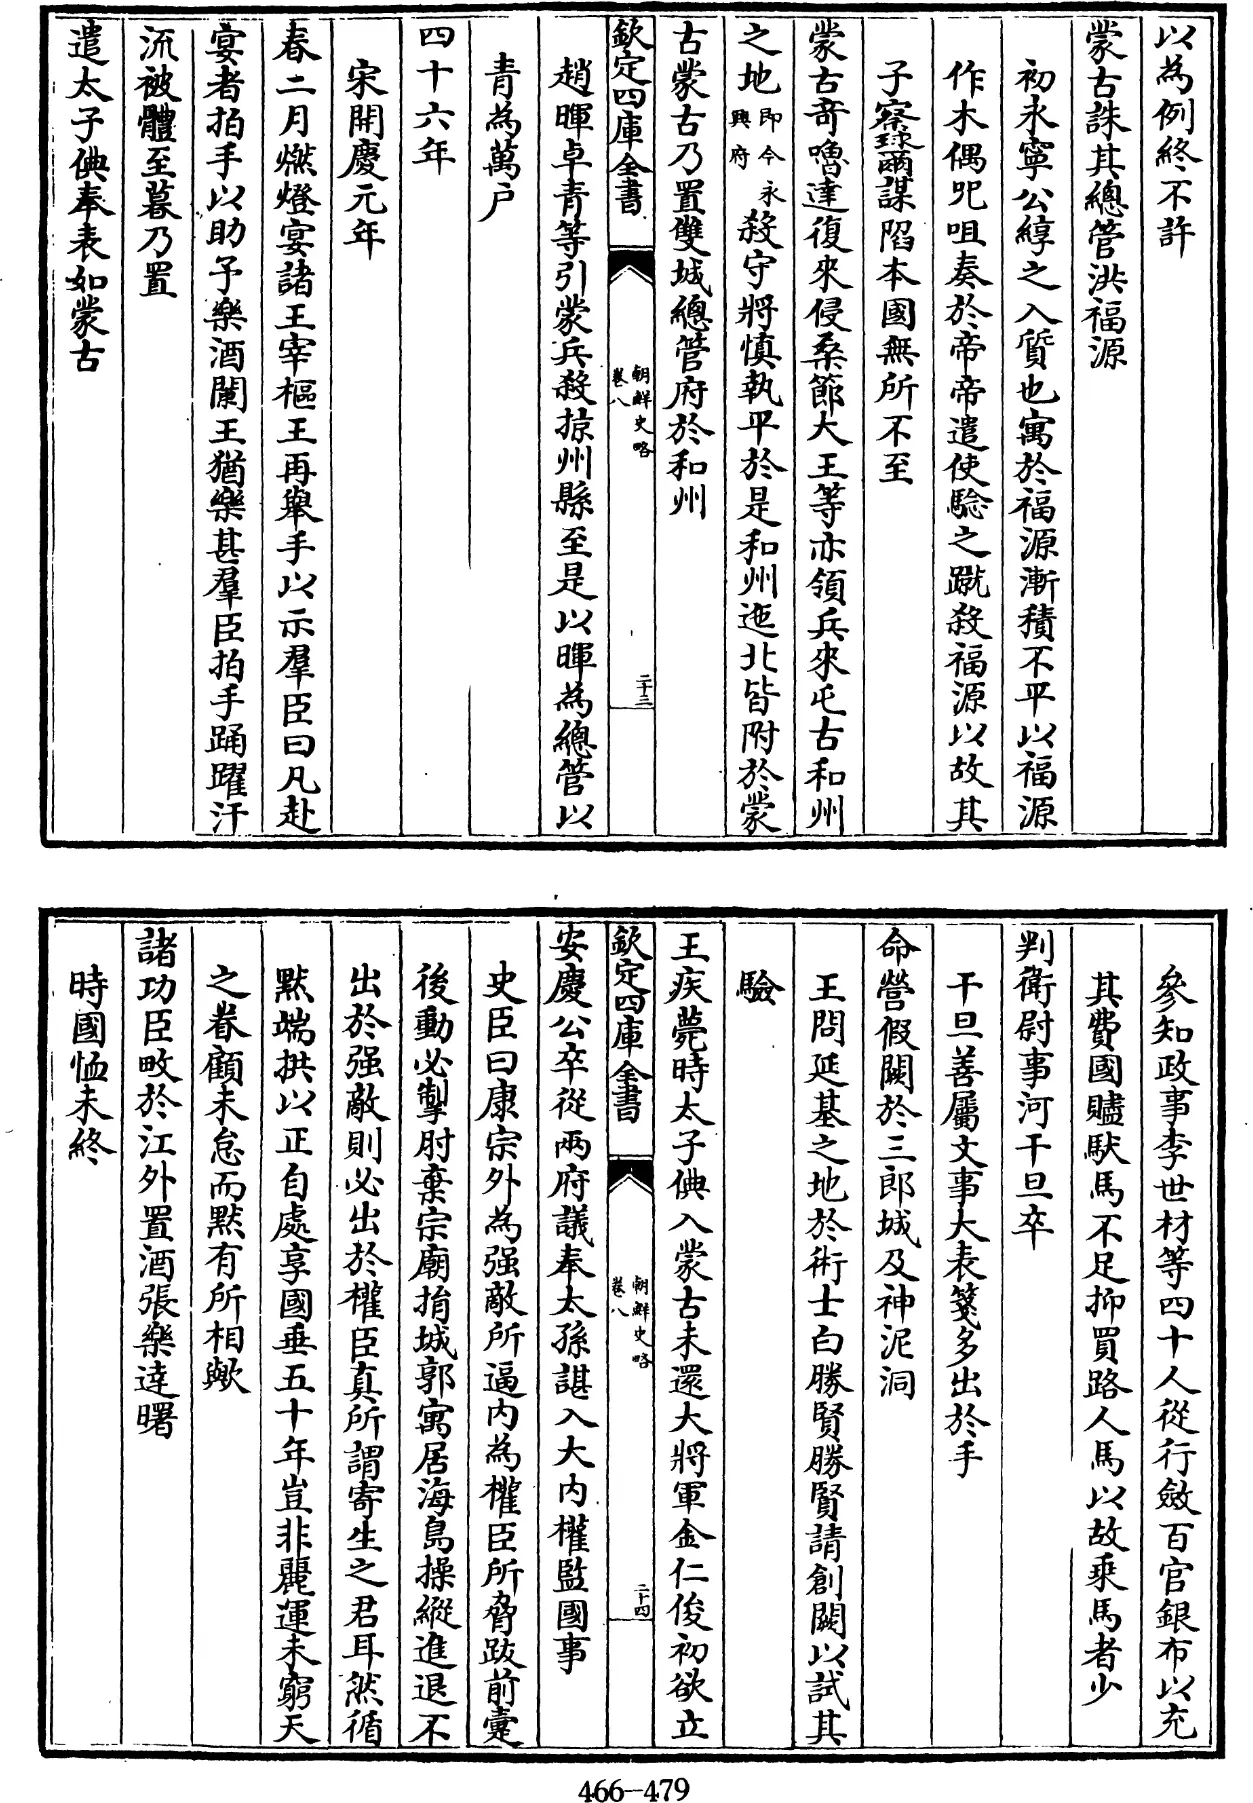 以為例終不許
蒙古誅其總管洪福源
初永寧公綧之入質也寓於福源漸積不平以福源
作木偶呪咀奏於帝帝遣使驗之蹴殺福源以故其
子察球爾謀陷本國無所不至
蒙古奇嚕達復來侵桑節大王等亦領兵來屯古和州
之地即今永興府殺守將慎執平於是和州迤北皆附於蒙
古蒙古乃置雙城總管府於和州
欽定四庫全書
朝鮮史略
卷八
二十三
趙暉卓青等引蒙兵殺掠州縣至是以暉為總管以
青為萬户
四十六年
宋開慶元年
春二月燃燈宴諸王宰樞王再舉手以示羣臣曰凡赴
宴者拍手以助予樂酒闌王猶樂甚羣臣拍手踊躍汗
流被體至暮乃置
遣太子倎奉表如蒙古
參知政事李世材等四十人從行斂百官銀布以充
其費國贐馱馬不足抑買路人馬以故乘馬者少
判衛尉事河千旦卒
千旦善屬文事大表箋多出於手
命營假闕於三郎城及神泥洞
王問延基之地於術士白勝賢勝賢請創闕以試其
驗
王疾薨時太子倎入蒙古未還大將軍金仁俊初欲立
欽定四庫全書
朝鮮史略
卷八
二十四
安慶公卒從兩府議奉太孫諶入大内權監國事
史臣曰康宗外為强敵所逼内為權臣所脅跋前疐
後動必掣肘棄宗廟捐城郭寓居海島操縱進退不
出於强敵則必出於權臣真所謂寄生之君耳然循
默端拱以正自處享國垂五十年豈非麗運未窮天
之眷顧未怠而默有所相歟
諸功臣畋於江外置酒張樂達曙
時國恤未終
466-479